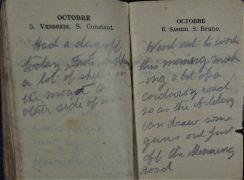 OCTOBRE
5. VENDREDI. S. Constant.
Had a day off
today,
a lot of shells in
the
other side of
OCTOBRE
6. SAMEDI. S. Bruno.
Went out to work
this morning mak
-ing a bit of a
corduroy road
so as the Artillery
can draw some
guns out just
off the
Road